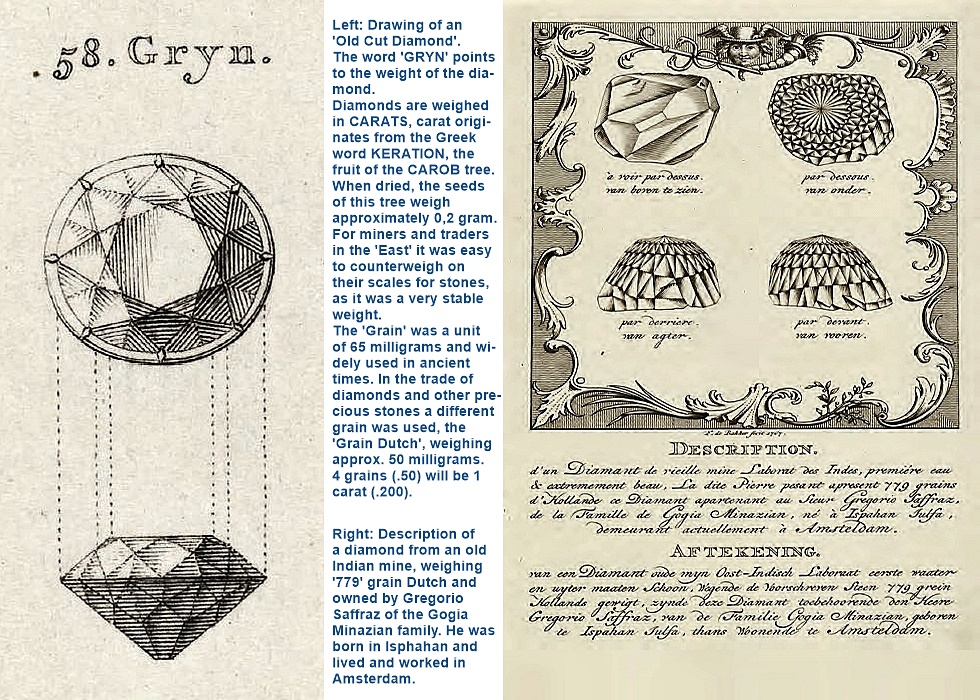 .58. Gryn.
Left: Drawing of an
'Old Cut Diamond'.
The word 'GRYN' points
to the weight of the dia-
mond.
Diamonds are weighed
in CARATS, carat origi-
nates from the Greek
word KERATION, the
fruit of the CAROB tree.
When dried, the seeds
of this tree weigh
approximately 0,2 gram.
For miners and traders
in the 'East' it was easy
to counterweigh on
their scales for stones,
as it was a very stable
weight.
The 'Grain' was a unit
of 65 milligrams and wi-
dely used in ancient
times. In the trade of
diamonds and other pre-
cious stones a different
grain was used, the
'Grain Dutch', weighing
approx. 50 milligrams.
4 grains (.50) will be 1
carat (.200).
Right: Description of
a diamond from an old
Indian mine, weighing
'779' grain Dutch and
owned by Gregorio
Saffraz of the Gogia
Minazian family. He was
born in Isphahan and
lived and worked in
Amsterdam.
a voir par dessus.
van boven te zien.
par dessous.
van onder.
par derriere.
van agter.
par devant.
van vooren.
de Bakker fecit 1767.
DESCRIPTION.
d'un Diamant de vieille mine Laborat des Indes, première eau
& extremement beau, La dite Pierre pesant apresent 779 grains
d'Hollande ce Diamant apartenant au Sieur Gregorio Saffraz,
de la Famille de Gogia Minazian, né à Ispahan Julfa,
demeurant actuellement à Amsteldam.
AFTEKENING.
van een Diamant oude myn Oost-Indisch Laboraat eerste waater
en uyter maaten Schoon, Wegende de Voorschreven Steen 779 grein
Hollands gewigt, zynde deze Diamant toebehoorende den Heere
Gregorio Saffraz, van de Familie Gogia Minazian, geboren
te Ispahan Julfa, thans Woonende te Amsteldam.